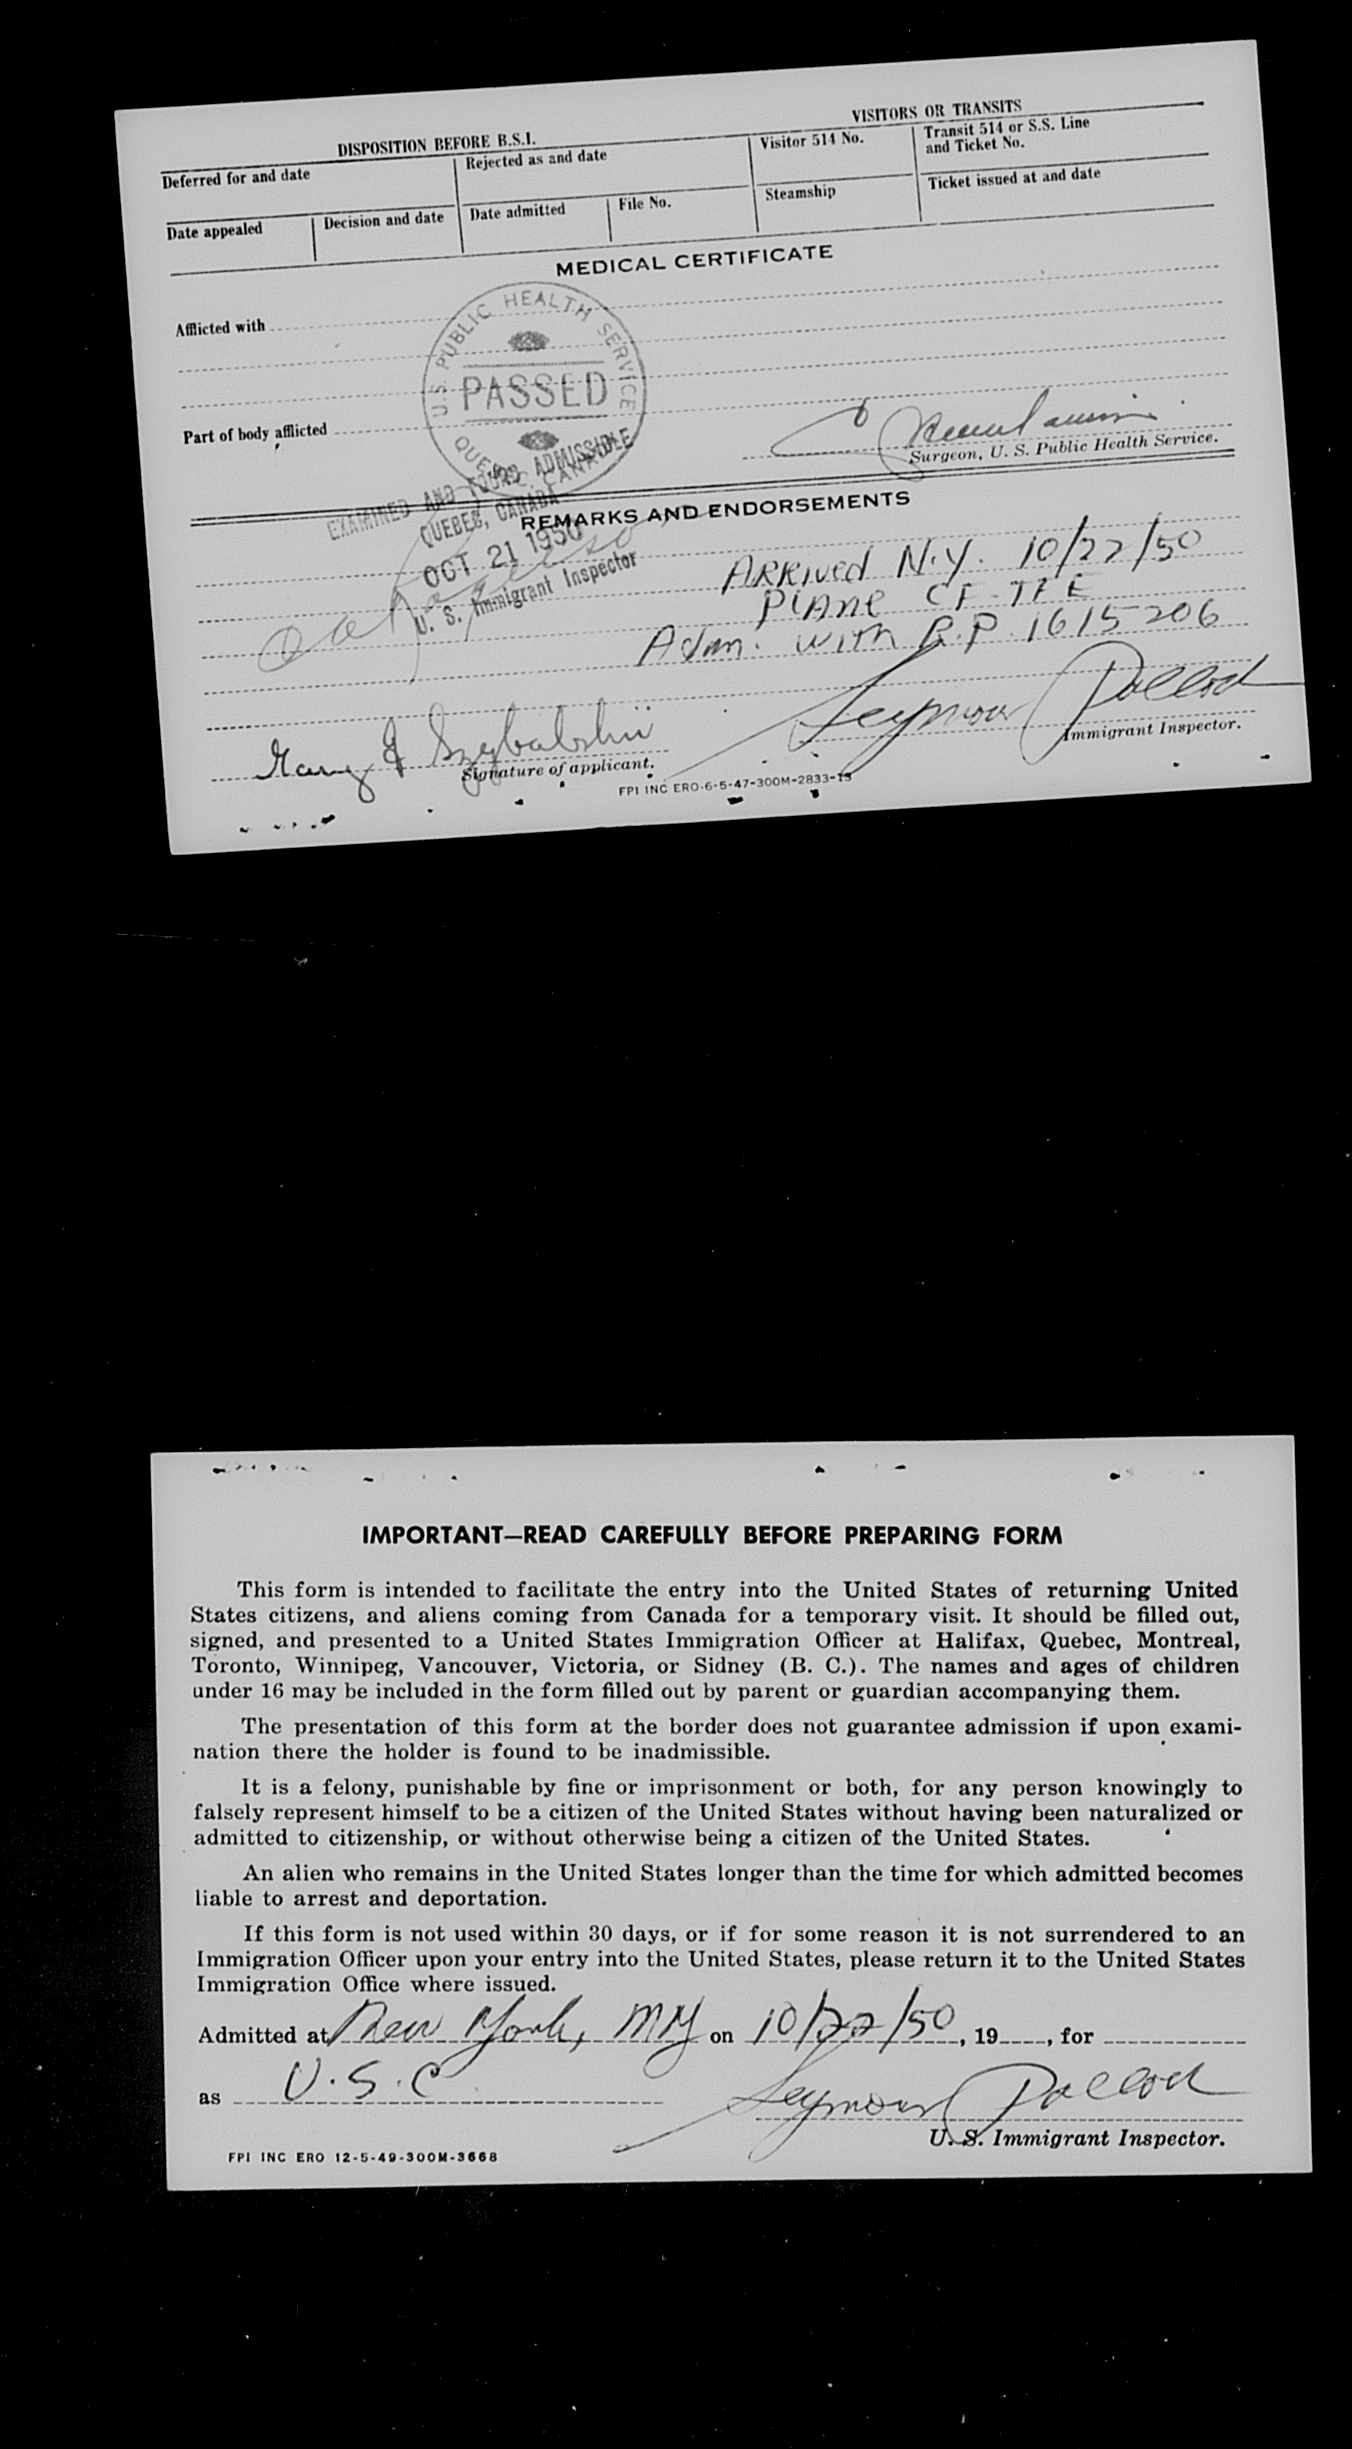 DISPOSITION BEFORE B.S.I.
VISITORS OR TRANSITS
Deferred for and date
Rejected as and date
Visitor 514 No.
Transit 514 or S.S. Line
and Ticket No.
Date appealed
Decision and date
Date admitted
File No.
Steamship
Ticket issued at and date
MEDICAL CERTIFICATE
Afflicted with
U.S. PUBLIC HEALTH SERVICE
PASSED
QUEBEC, CANADA
Part of body afflicted
Surgeon, U. S. Public Health Service.
EXAMINED AND FOUND ADMISSIBLE
QUEBEC, CANADA
OCT 21 1950
U. S. Immigrant Inspector
REMARKS AND ENDORSEMENTS
Arrived N.Y. 10/22/50
Plane CF-TFE
Adm. with R.P. 1615206
Seymour Pollock
Immigrant Inspector.
Signature of applicant.
FPI INC ERO-6-5-47-300M-2833-13
IMPORTANT—READ CAREFULLY BEFORE PREPARING FORM
This form is intended to facilitate the entry into the United States of returning United
States citizens, and aliens coming from Canada for a temporary visit. It should be filled out,
signed, and presented to a United States Immigration Officer at Halifax, Quebec, Montreal,
Toronto, Winnipeg, Vancouver, Victoria, or Sidney (B. C.). The names and ages of children
under 16 may be included in the form filled out by parent or guardian accompanying them.
The presentation of this form at the border does not guarantee admission if upon exami-
nation there the holder is found to be inadmissible.
It is a felony, punishable by fine or imprisonment or both, for any person knowingly to
falsely represent himself to be a citizen of the United States without having been naturalized or
admitted to citizenship, or without otherwise being a citizen of the United States.
An alien who remains in the United States longer than the time for which admitted becomes
liable to arrest and deportation.
If this form is not used within 30 days, or if for some reason it is not surrendered to an
Immigration Officer upon your entry into the United States, please return it to the United States
Immigration Office where issued.
Admitted at New York, NY on 10/22/50, 19____, for
as U.S.C.
Seymour Pollock
U. S. Immigrant Inspector.
FPI INC ERO 12-5-49-300M-3668